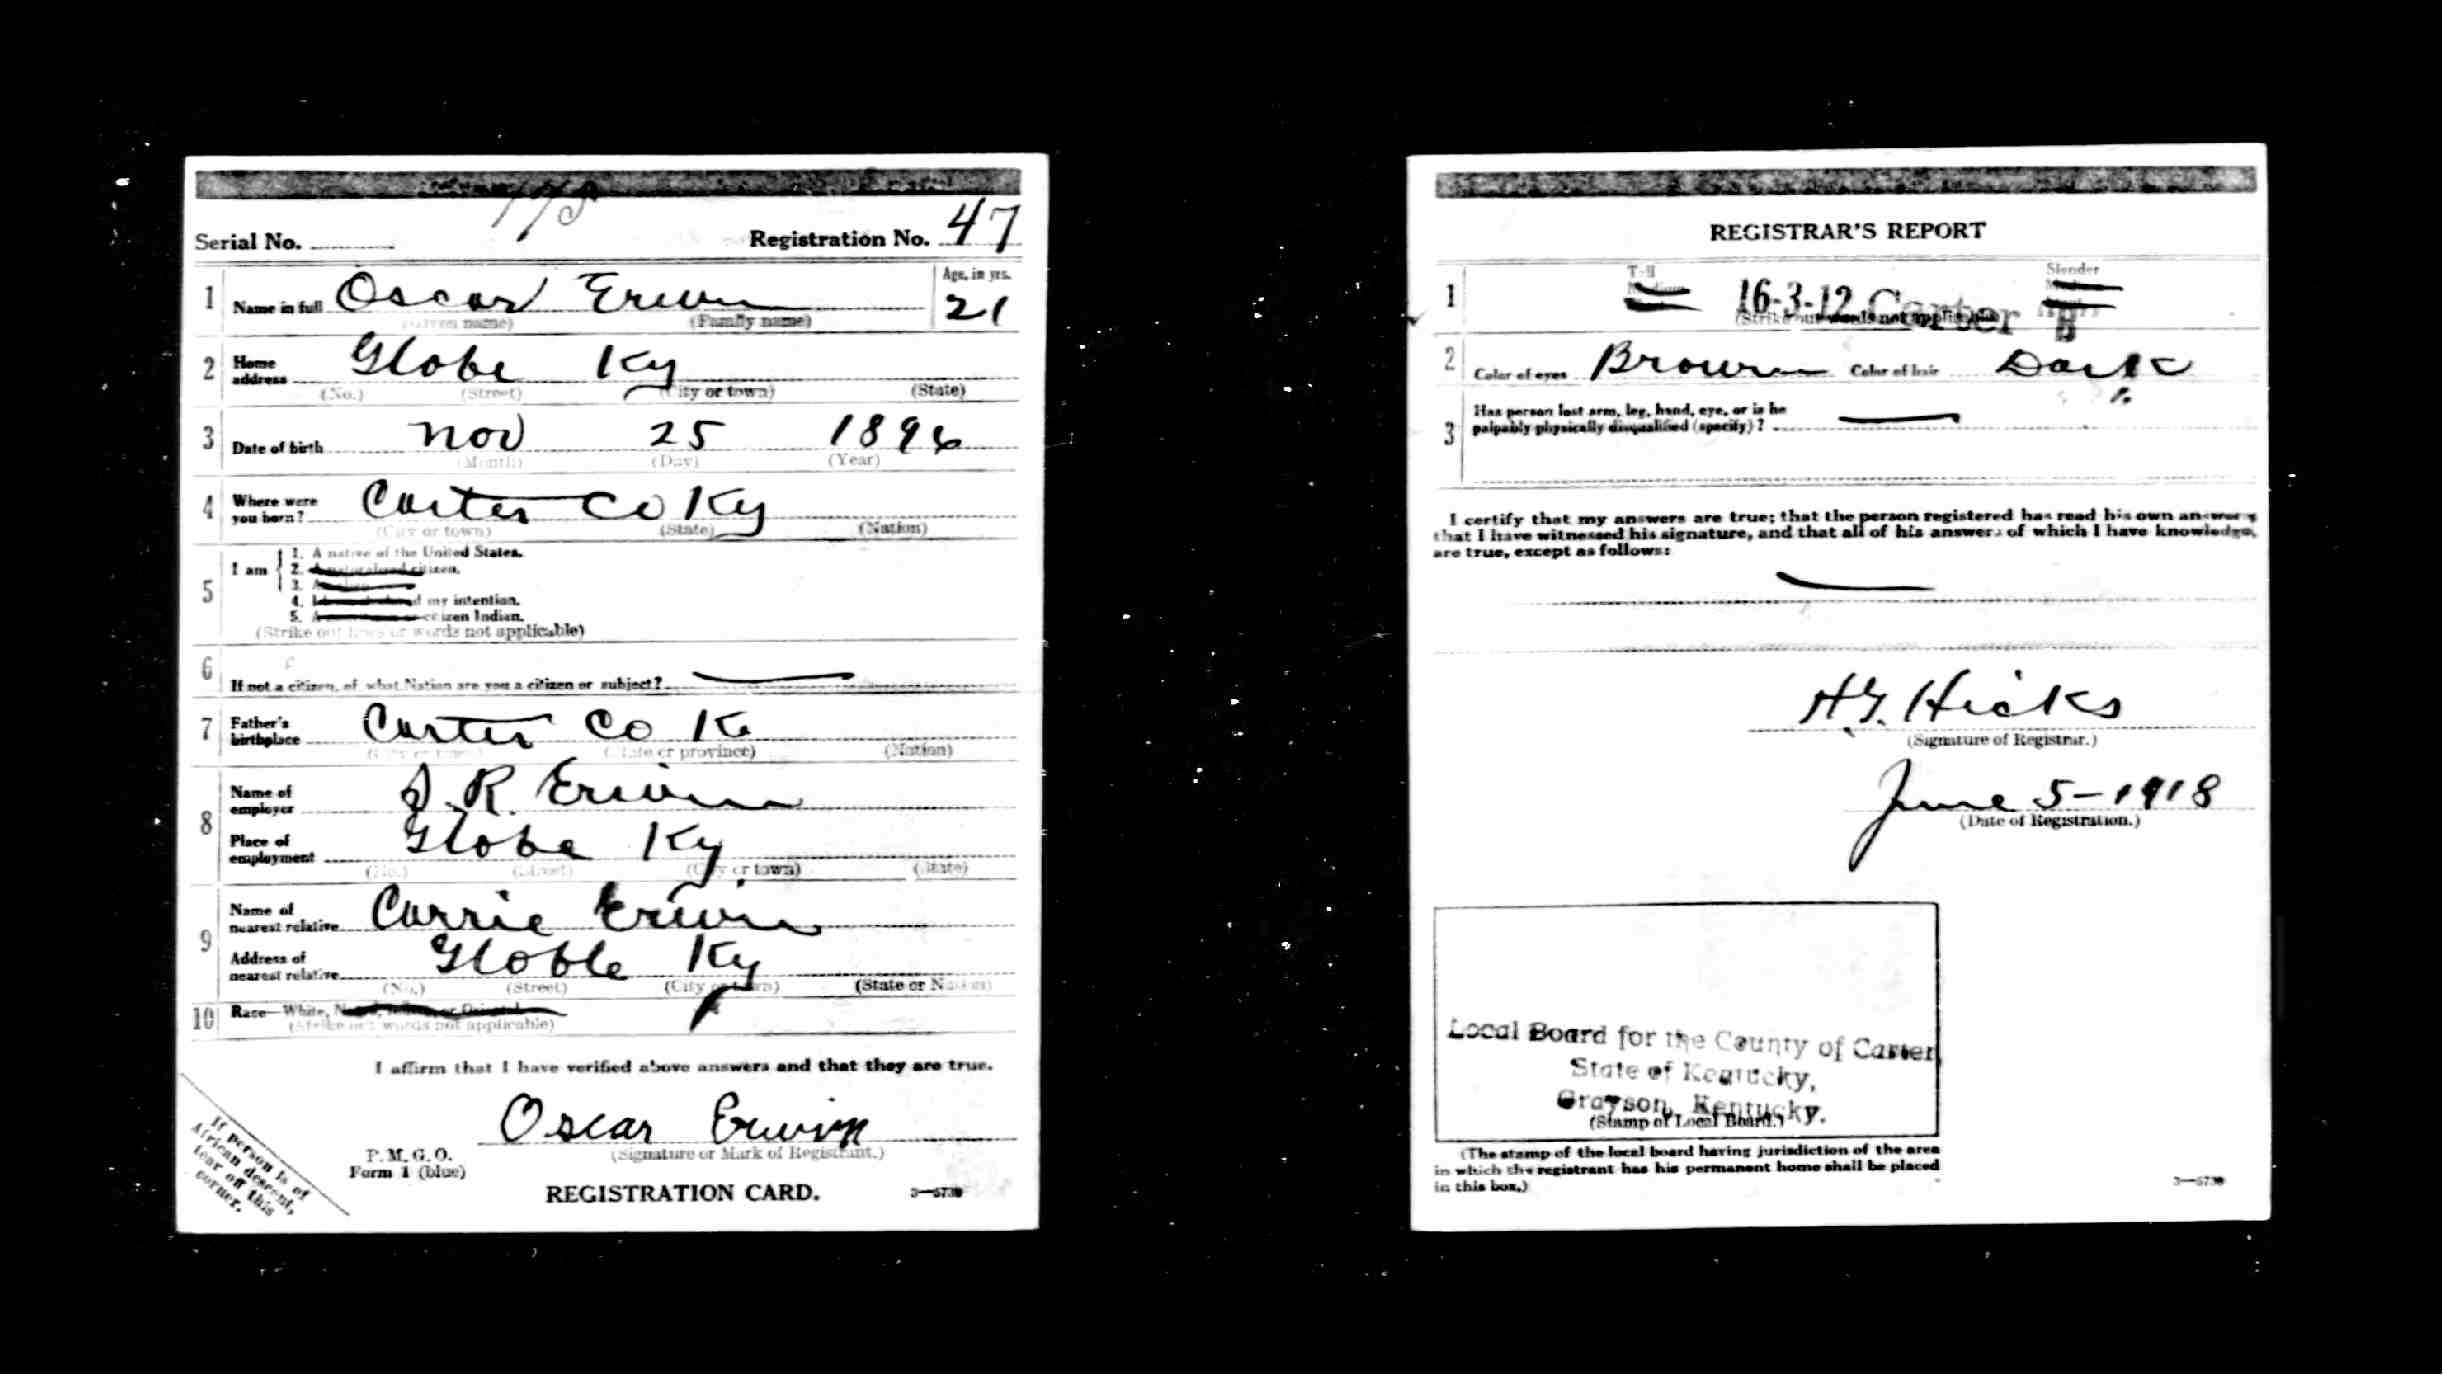 Serial No.
Registration No. 47
1 Name in full Oscar Erwin
(Given name) (Family name)
Age, in yrs.
21
2 Home address Globe Ky
(No.) (Street) (City or town) (State)
3 Date of birth Nov 25 1896
(Month) (Day) (Year)
4 Where were you born? Carter Co Ky
(City or town) (State) (Nation)
5 I am
1. A native of the United States.
2. A naturalized citizen.
3.
4. my intention.
5. citizen Indian.
(Strike out lines or words not applicable)
6 If not a citizen, of what Nation are you a citizen or subject?
7 Father's birthplace Carter Co K
(City or town) (State or province) (Nation)
8 Name of employer S. R. Erwin
Place of employment Globe Ky
(No.) (Street) (City or town) (State)
9 Name of nearest relative Carrie Erwin
Address of nearest relative Globle Ky
(No.) (Street) (City or town) (State or Nation)
10 Race—White, or Oriental
(Strike out words not applicable)
I affirm that I have verified above answers and that they are true.
Oscar Erwin
(Signature or Mark of Registrant.)
P. M. G. O.
Form 1 (blue)
REGISTRATION CARD.
3—5739
If person is of
African descent,
tear off this
corner.
REGISTRAR'S REPORT
1 Tall Slender
16-3-12 Carter
(Strike out words not applicable)
2 Color of eyes Brown Color of hair Dark
3 Has person lost arm, leg, hand, eye, or is he
palpably physically disqualified (specify)?
I certify that my answers are true; that the person registered has read his own answers
that I have witnessed his signature, and that all of his answers of which I have knowledge,
are true, except as follows:
H.G. Hicks
(Signature of Registrar.)
June 5-1918
(Date of Registration.)
Local Board for the County of Carter
State of Kentucky,
Grayson, Kentucky.
(Stamp of Local Board.)
(The stamp of the local board having jurisdiction of the area
in which the registrant has his permanent home shall be placed
in this box.)
3—5739